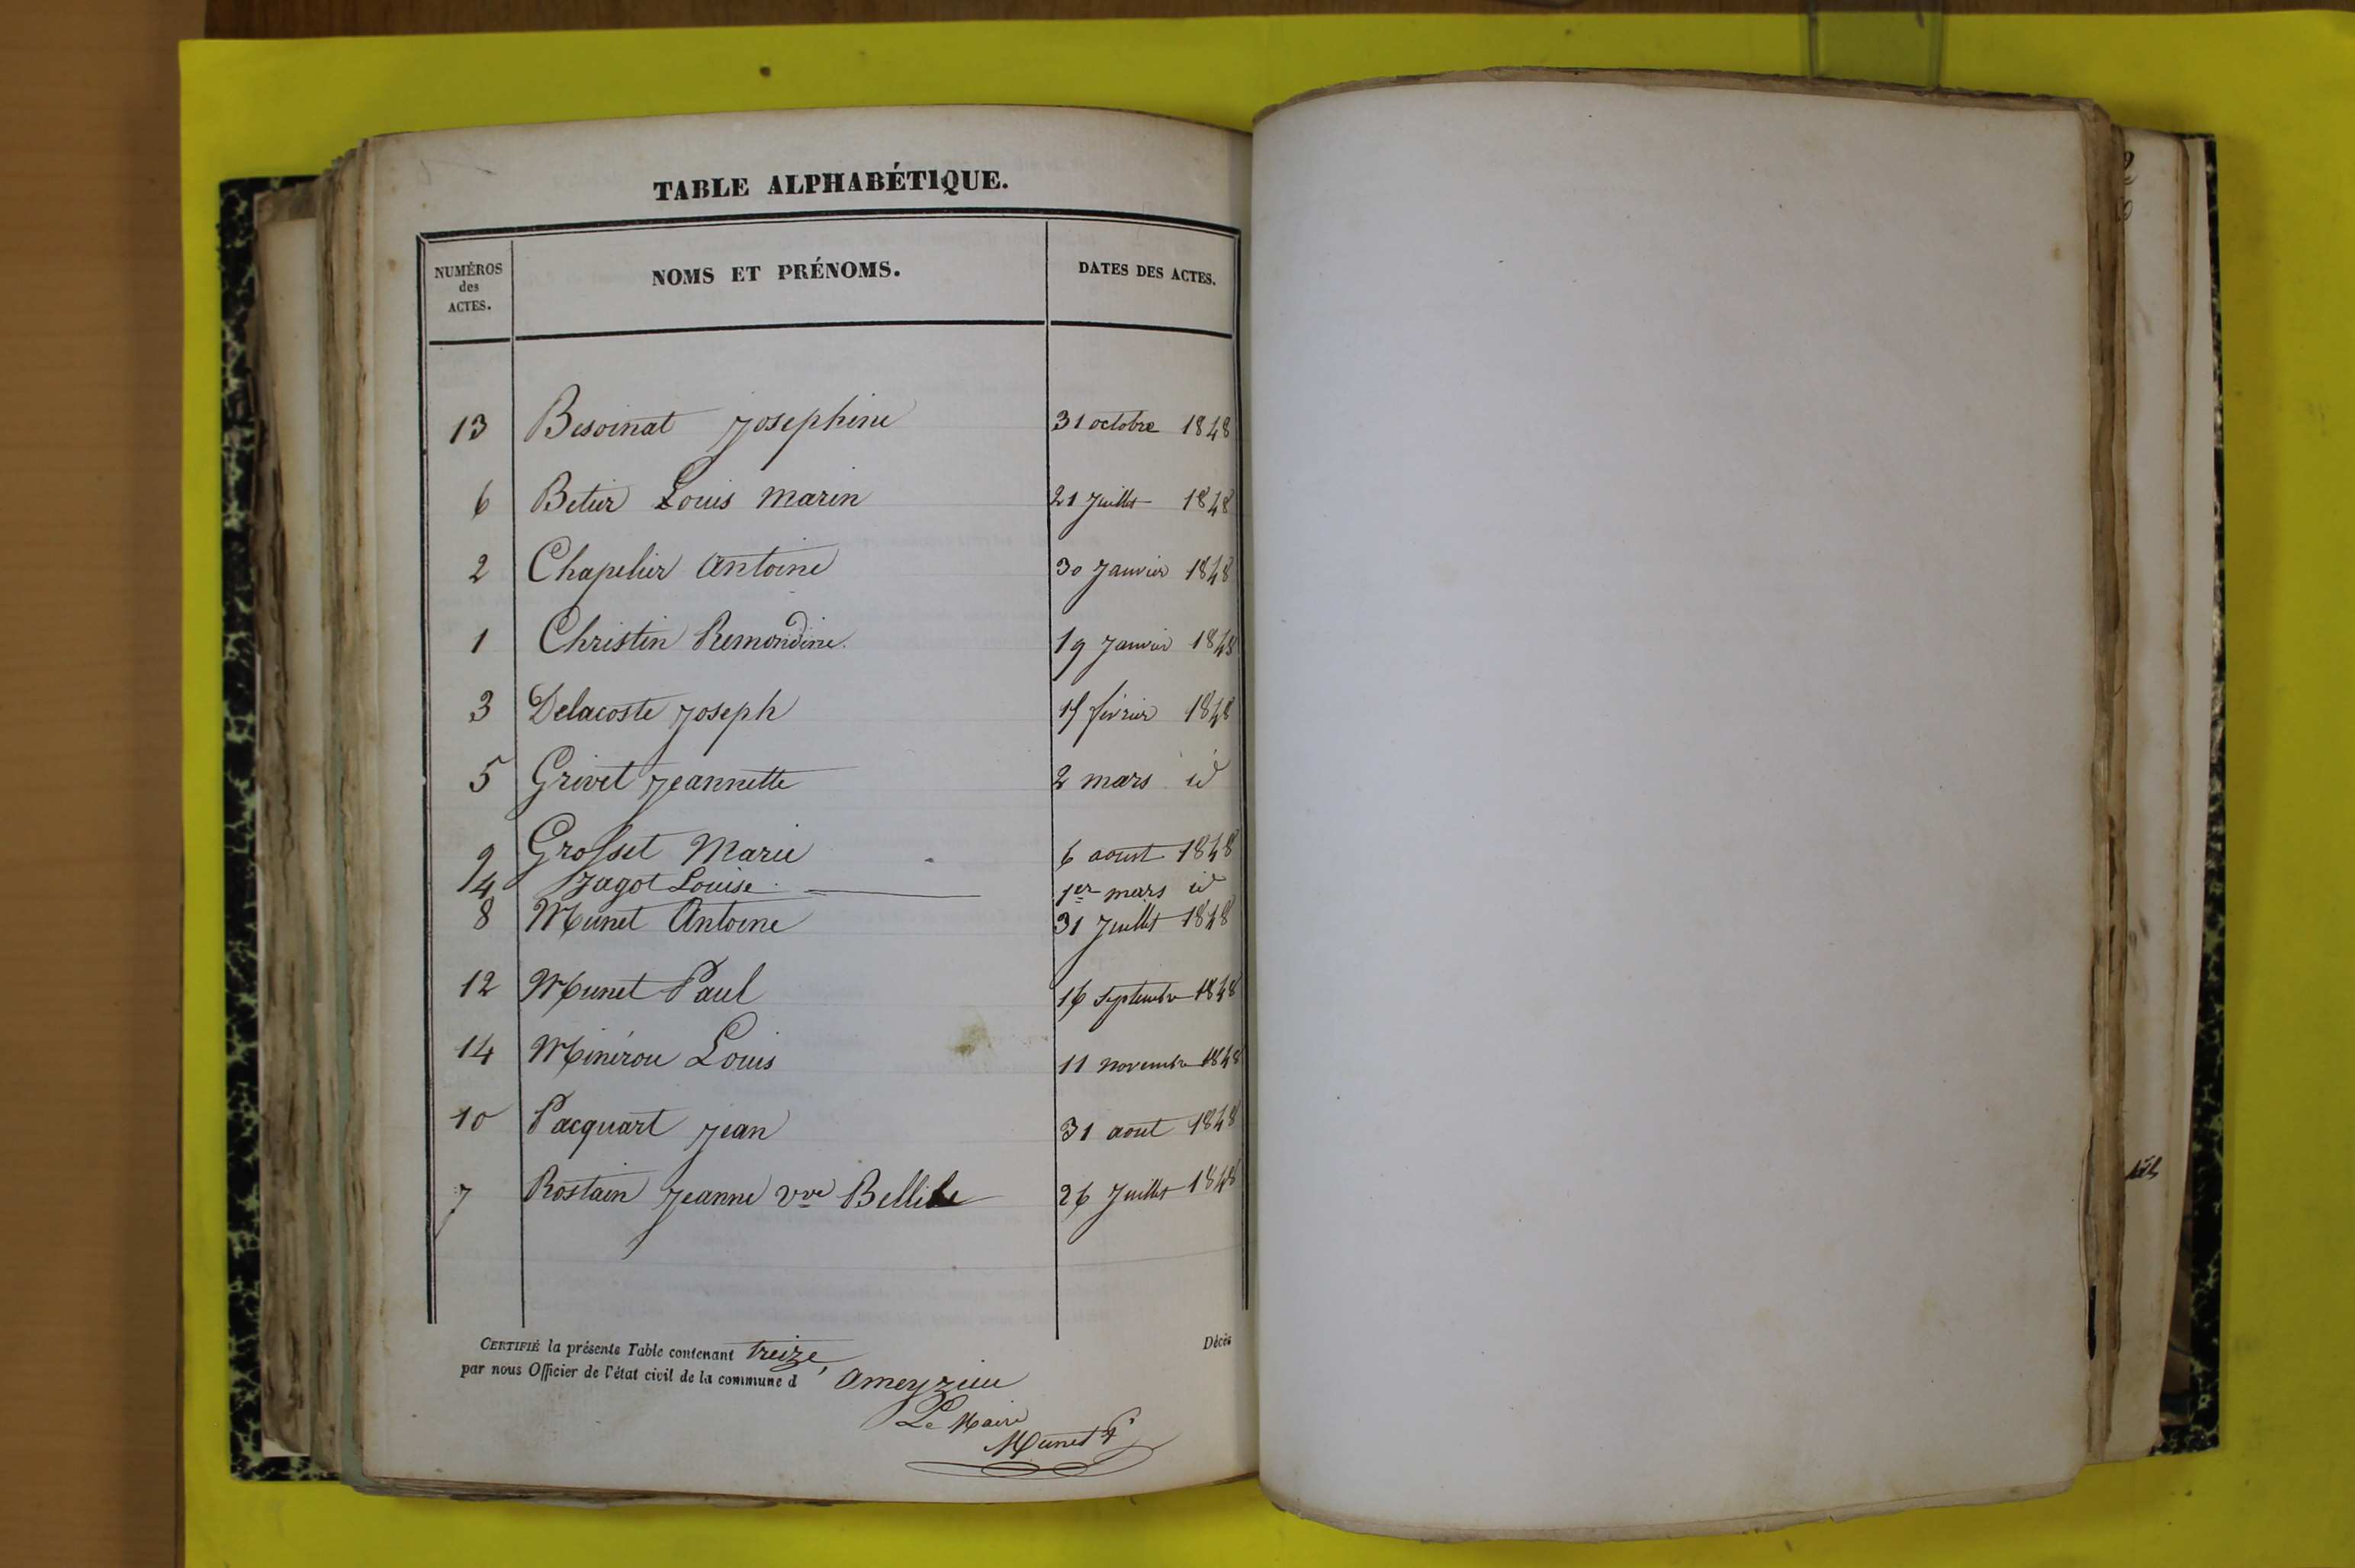 TABLE ALPHABÉTIQUE.
NUMÉROS des ACTES. NOMS ET PRÉNOMS. DATES DES ACTES.
13 Besoinat Josephine 31 octobre 1848
6 Betier Louis Marin 21 Juillet 1848
2 Chapelier Antoine 30 Janvier 1848
1 Christin Remondine. 19 Janvier 1848
3 Delacoste Joseph février 1848
5 Grivet Jeannette 2 mars id
9 Grosset Marie 6 aoust 1848
4 Jagot Louise. 1er mars id
8 Munet Antoine 31 Juillet 1848
12 Munet Paul 16 Septembre 1848
14 Minérou Louis 11 novembre 1848
10 Pacquart Jean 31 aout 1848
7 Rostain Jeanne vve 26 Juillet 1848
CERTIFIÉ la présente Table contenant treize, Décès
par nous Officier de l'état civil de la commune d'Ameyzieu
Le Maire
Munet